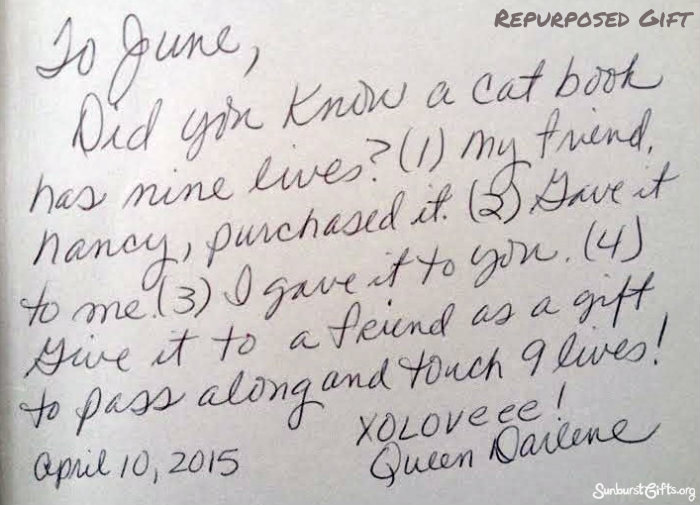 REPURPOSED GIFT
To June,
Did you know a cat book
has nine lives? (1) My friend,
Nancy, purchased it. (2) Gave it
to me. (3) I gave it to you. (4)
Give it to a friend as a gift
to pass along and touch 9 lives!
XOLOVeee!
Queen Darlene
April 10, 2015
SunburstGifts.org